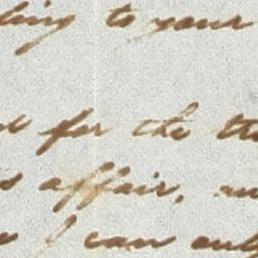 ling to your
for the
affair,
I can only